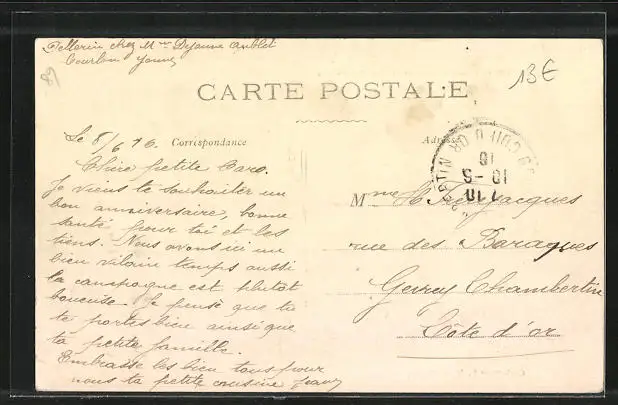 Pellerin chez Mme Dejaune Aublet
Courlon Yonne
89
13€
CARTE POSTALE
Correspondance
Adresse
Le 8/6 16.
Chère petite Caro.
Je viens te souhaiter un
bon anniversaire, bonne
santé pour toi et les
tiens. Nous avons ici un
bien vilain temps aussi
la campagne est plutôt
boueuse. Je pense que tu
te portes bien ainsi que
ta petite famille.
Embrasse les bien tous pour
nous ta petite cousine Jeanne
Mme H. Jacques
rue des Baraques
Gevrey Chambertin
Côte d'or